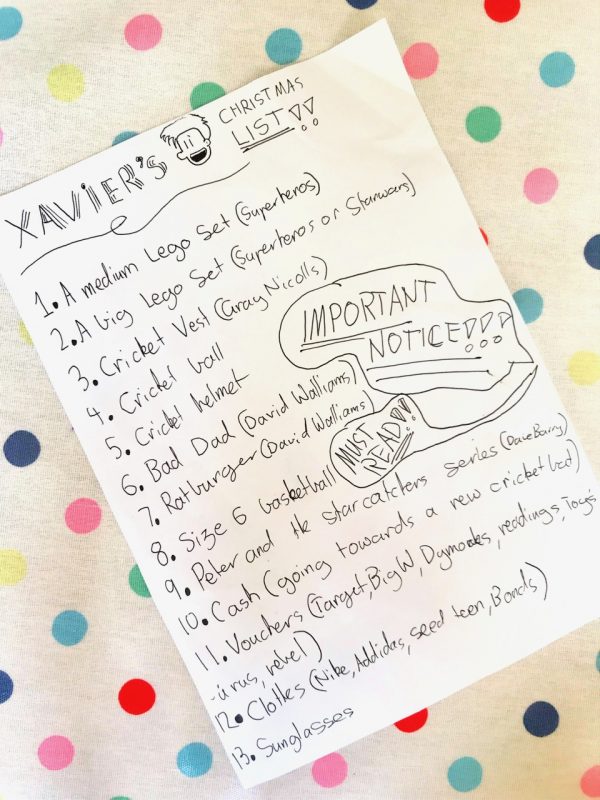 XAVIER'S
CHRISTMAS
LIST!!
1. A medium Lego Set (Superheros)
2. A big Lego Set (Superheros or Starwars)
3. Cricket Vest (Gray Nicolls)
4. Cricket ball
5. Cricket helmet
6. Bad Dad (David Walliams)
7. Ratburger (David Walliams
8. Size 6 basketball
9. Peter and the starcatchers series (Dave Barry)
10. Cash (going towards a new cricket bat)
11. Vouchers (Target, Big W, Dymocks, reddings, Toys
-ú rus, rebel)
12. Clothes (Nike, Addidas, seed teen, Bonds)
13. Sunglasses
IMPORTANT
NOTICE!!!
MUST
READ!!